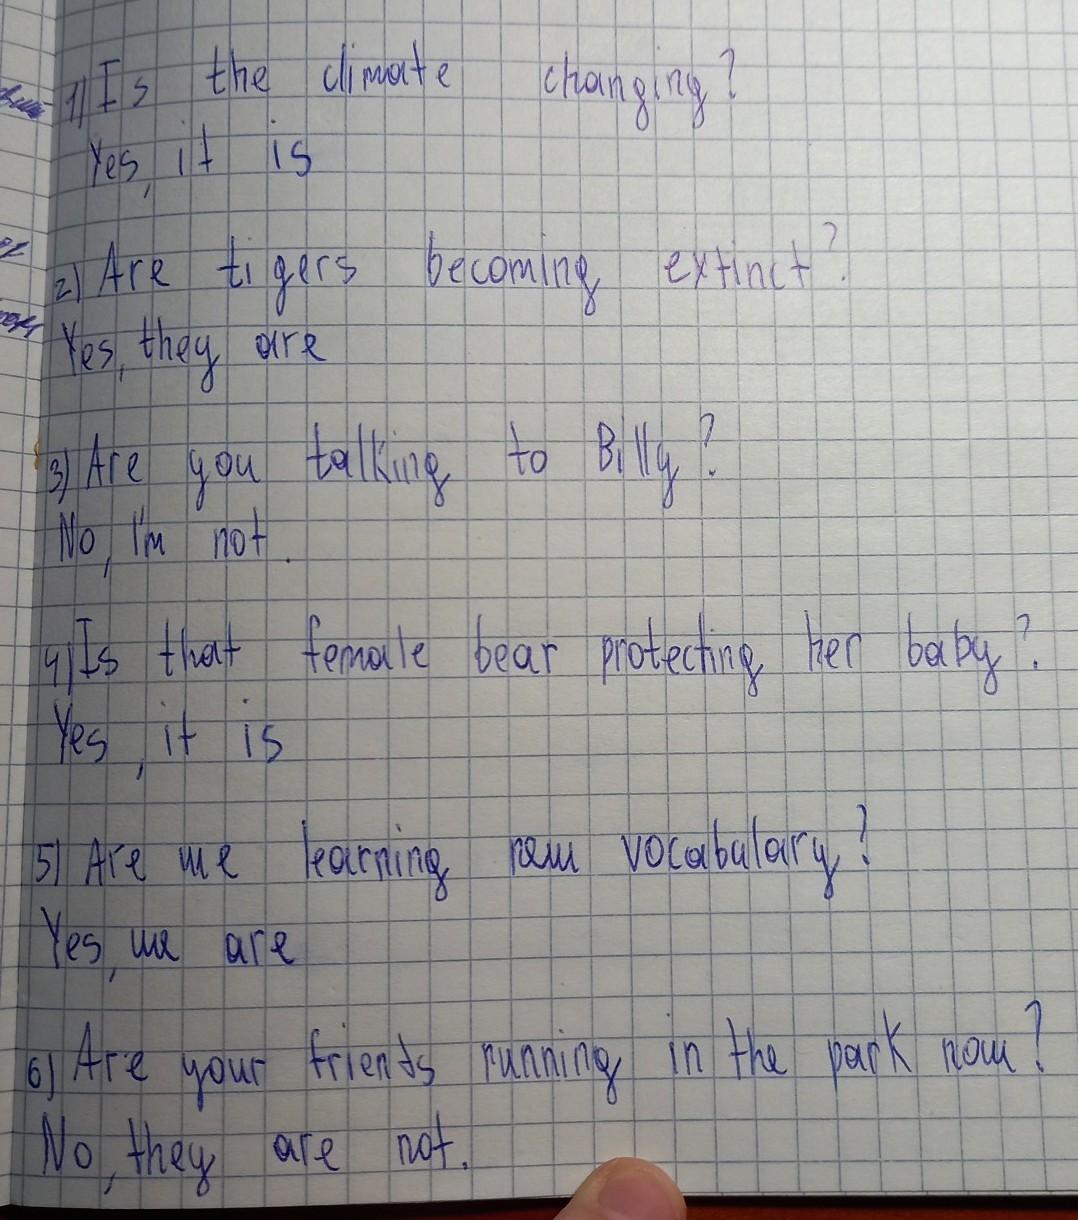 1) Is the climate changing?
Yes, it is
2) Are tigers becoming extinct?
Yes, they are
3) Are you talking to Billy?
No, I'm not.
4) Is that female bear protecting her baby?
Yes, it is
5) Are we learning new vocabulary?
Yes, we are
6) Are your friends running in the park now?
No, they are not.